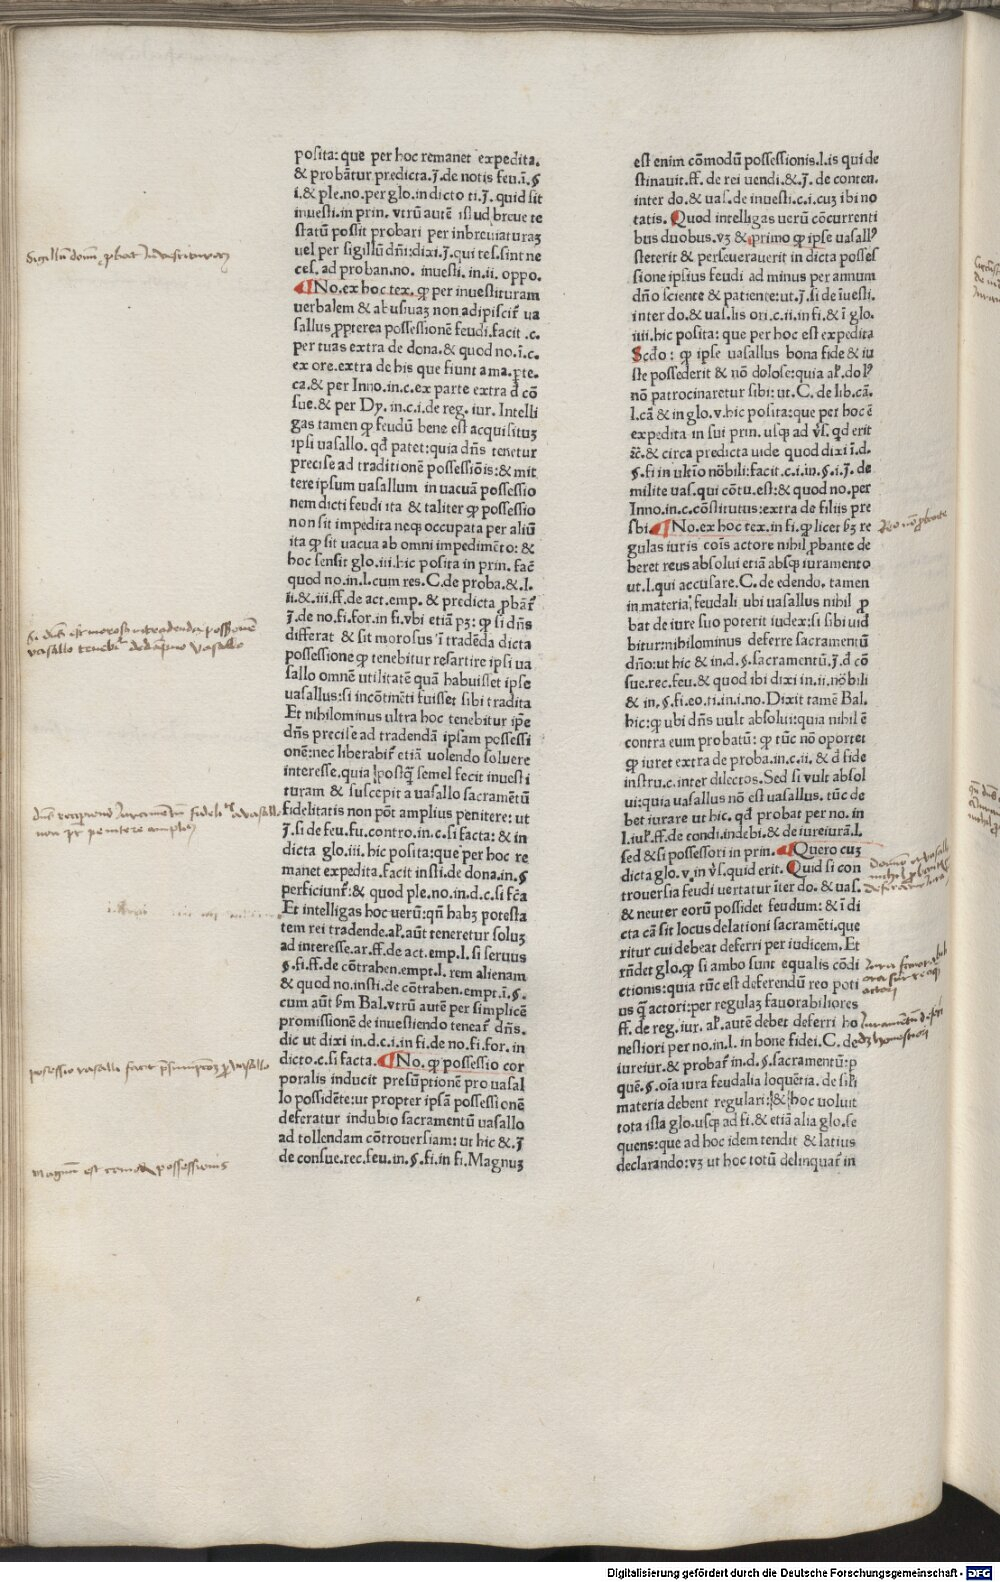 posita: que per hoc remanet expedita.
& probãtur predicta.J.de notis feu.ĩ.§
i.& ple.no.per glo.in dicto ti.J. quid sit
inuesti.in prin. vtrũ autẽ istud breue te
statũ possit probari per inbreuiaturaʒ
uel per sigillũ dñi:dixi.J.qui tes.sint ne
ces. ad proban.no. inuesti. in.ii. oppo.
¶No.ex hoc tex. ꝙ per inuestituram
uerbalem & abusiuaʒ non adipiscit᷑ ua
sallus ꝓpterea possessionẽ feudi.facit .c.
per tuas extra de dona.& quod no.ĩ.c.
ex ore.extra de his que fiunt a ma.ꝑte.
ca.& per Inno.in.c.ex parte extra d̄ cõ
sue.& per Dy. in.c.i.de reg. iur. Intelli
gas tamen ꝙ feudũ bene est acquisituʒ
ipsi uasallo. qd̄ patet:quia dñs tenetur
precise ad traditionẽ possessiõis:& mit
tere ipsum uasallum in uacuã possessio
nem dicti feudi ita & taliter ꝙ possessio
non sit impedita neqȝ occupata per aliũ
ita ꝙ sit uacua ab omni impedimẽto: &
hoc sensit glo.iii.hic posita in prin. facẽ
quod no.in.l.cum res.C.de proba.&.l.
ii.& iii.ff.de act.emp. & predicta ꝓbãt᷑
J.de no.fi.for.in fi.vbi etiã pʒ: ꝙ si dñs
differat & sit morosus ĩ tradẽda dicta
possessione ꝙ tenebitur resartire ipsi ua
sallo omnẽ utilitatẽ quã habuisset ipse
uasallus:si incõtinẽti fuisset sibi tradita
Et nihilominus ultra hoc tenebitur ip̃e
dñs precise ad tradendã ipsam possessi
onẽ:nec liberabit᷑ etiã uolendo soluere
interesse.quia postq̃ semel fecit inuesti
turam & suscepit a uasallo sacramẽtũ
fidelitatis non põt amplius penitere: ut
J.si de feu.fu.contro.in.c.si facta: & in
dicta glo.iii.hic posita:que per hoc re
manet expedita.facit insti.de dona.in.§
perficiunt᷑:& quod ple.no.in.d.c.si fc̃a
Et intelligas hoc uerũ:qñ habʒ potesta
tem rei tradende.al̓.aũt teneretur soluʒ
ad interesse.ar.ff.de act.emp.l.si seruus
§.fi.ff.de cõtrahen.empt.l. rem alienam
& quod no.insti.de cõtrahen.empt.ĩ.§.
cum aũt ẞm Bal.vtrũ autẽ per simplicẽ
promissionẽ de inuestiendo teneat᷑ dñs.
dic ut dixi in.d.c.i.in fi.de no.fi.for. in
dicto.c.si facta. ¶No. ꝙ possessio cor
poralis inducit presũptionẽ pro uasal
lo possidẽte:ut propter ipsã possessionẽ
deferatur indubio sacramentũ uasallo
ad tollendam cõtrouersiam: ut hic &.J
de consue.rec.feu.in.§.fi.in fi.Magnuʒ
est enim cõmodũ possessionis.l.is qui de
stinauit.ff. de rei uendi.&.J. de conten.
inter do.& uas.de inuesti.c.i.cuʒ ibi no
tatis. Quod intelligas uerũ cõcurrenti
bus duobus.vʒ & primo ꝙ ipse uasallꝰ
steterit & perseuerauerit in dicta posses
sione ipsius feudi ad minus per annum
dño sciente & patiente:ut.J.si de ĩuesti.
inter do.& uas.lis ori.c.ii.in fi.& ĩ glo.
iiii.hic posita: que per hoc est expedita
Scd̃o : ꝙ ipse uasallus bona fide & iu
ste possederit & nõ dolose:quia al̓.dolꝰ
nõ patrocinaretur sibi: ut.C. de lib.cã.
l.cã & in glo.v.hic posita:que per hoc ẽ
expedita in sui prin. usqȝ ad v̓s. qd̄ erit
&c̃.& circa predicta uide quod dixi ĩ.d.
§.fi in ultĩo nõbili:facit.c.i.in.§.i.J. de
milite uas.qui cõtu.est:& quod no.per
Inno.in.c.cõstitutus:extra de filiis pre
sbi. ¶No.ex hoc tex.in fi.ꝙ licet ẞʒ re
gulas iuris cois̃ actore nihil ꝓbante de
beret reus absolui etiã absqȝ iuramento
ut.l.qui accusare.C. de edendo. tamen
in materia feudali ubi uasallus nihil ꝓ
bat de iure suo poterit iudex:si sibi uid̄
bitur:nihilominus deferre sacramentũ
dño:ut hic & in.d.§.sacramentũ.J.d̄ cõ
sue.rec.feu.& quod ibi dixi in.ii.nõbili
& in.§.fi.eo.ti.in.i.no.Dixit tamẽ Bal.
hic:ꝙ ubi dñs uult absolui:quia nihil ẽ
contra eum probatũ: ꝙ tũc nõ oportet
ꝙ iuret extra de proba.in.c.ii. & d̄ fide
instru.c.inter dilectos.Sed si vult absol
ui:quia uasallus nõ est uasallus. tũc de
bet iurare ut hic. qd̄ probat per no. in
l.iul̓.ff.de condi.indebi.& de iureiurã.l.
sed & si possessori in prin. ¶Quero cuʒ
dicta glo.v.in v̓s.quid erit. Quid si con
trouersia feudi uertatur ĩter do. & uas.
& neuter eorũ possidet feudum: & ĩ di
cta cã sit locus delationi sacramẽti.que
ritur cui debeat deferri per iudicem. Et
rñdet glo.ꝙ si ambo sunt equalis cõdi
ctionis:quia tũc est deferendũ reo poti
us q̃ actori:per regulaʒ fauorabiliores
ff. de reg. iur. al̓. autẽ debet deferri ho
nestiori per no.in.l. in bone fidei.C. de
iureiur.& probat᷑ in.d.§.sacramentũ:ꝑ
quẽ.§.oĩa iura feudalia loquẽtia. de sil̓i
materia debent regulari: & hoc uoluit
tota ista glo.usqȝ ad fi.& etiã alia glo.se
quens:que ad hoc idem tendit & latius
declarando:vʒ ut hoc totũ delinquat᷑ in
possessio vasalli facit
magnum est possessionis
Digitalisierung gefördert durch die Deutsche Forschungsgemeinschaft - DFG